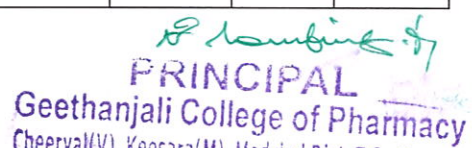 PRINCIPAL
Geethanjali College of Pharmacy
Cheeryal(V), Keesara(M),